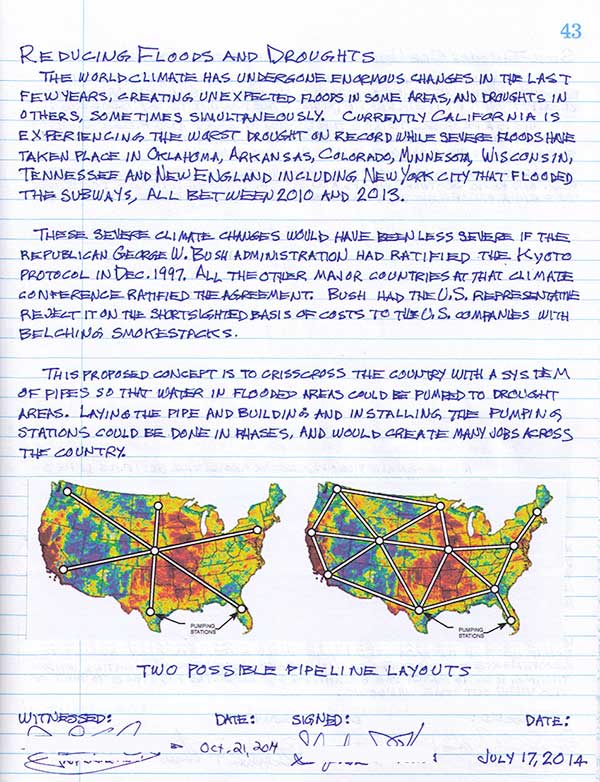 43
REDUCING FLOODS AND DROUGHTS
THE WORLD CLIMATE HAS UNDERGONE ENORMOUS CHANGES IN THE LAST
FEW YEARS, CREATING UNEXPECTED FLOODS IN SOME AREAS, AND DROUGHTS IN
OTHERS, SOMETIMES SIMULTANEOUSLY. CURRENTLY CALIFORNIA IS
EXPERIENCING THE WORST DROUGHT ON RECORD WHILE SEVERE FLOODS HAVE
TAKEN PLACE IN OKLAHOMA, ARKANSAS, COLORADO, MINNESOTA, WISCONSIN,
TENNESSEE AND NEW ENGLAND INCLUDING NEW YORK CITY THAT FLOODED
THE SUBWAYS, ALL BETWEEN 2010 AND 2013.
THESE SEVERE CLIMATE CHANGES WOULD HAVE BEEN LESS SEVERE IF THE
REPUBLICAN GEORGE W. BUSH ADMINISTRATION HAD RATIFIED THE KYOTO
PROTOCOL IN DEC. 1997. ALL THE OTHER MAJOR COUNTRIES AT THAT CLIMATE
CONFERENCE RATIFIED THE AGREEMENT. BUSH HAD THE U.S. REPRESENTATIVE
REJECT IT ON THE SHORTSIGHTED BASIS OF COSTS TO THE U.S. COMPANIES WITH
BELCHING SMOKESTACKS.
THIS PROPOSED CONCEPT IS TO CRISSCROSS THE COUNTRY WITH A SYSTEM
OF PIPES SO THAT WATER IN FLOODED AREAS COULD BE PUMPED TO DROUGHT
AREAS. LAYING THE PIPE AND BUILDING AND INSTALLING THE PUMPING
STATIONS COULD BE DONE IN PHASES, AND WOULD CREATE MANY JOBS ACROSS
THE COUNTRY.
PUMPING
STATIONS
PUMPING
STATIONS
TWO POSSIBLE PIPELINE LAYOUTS
WITNESSED: DATE: SIGNED: DATE:
Oct. 21, 2014 JULY 17, 2014